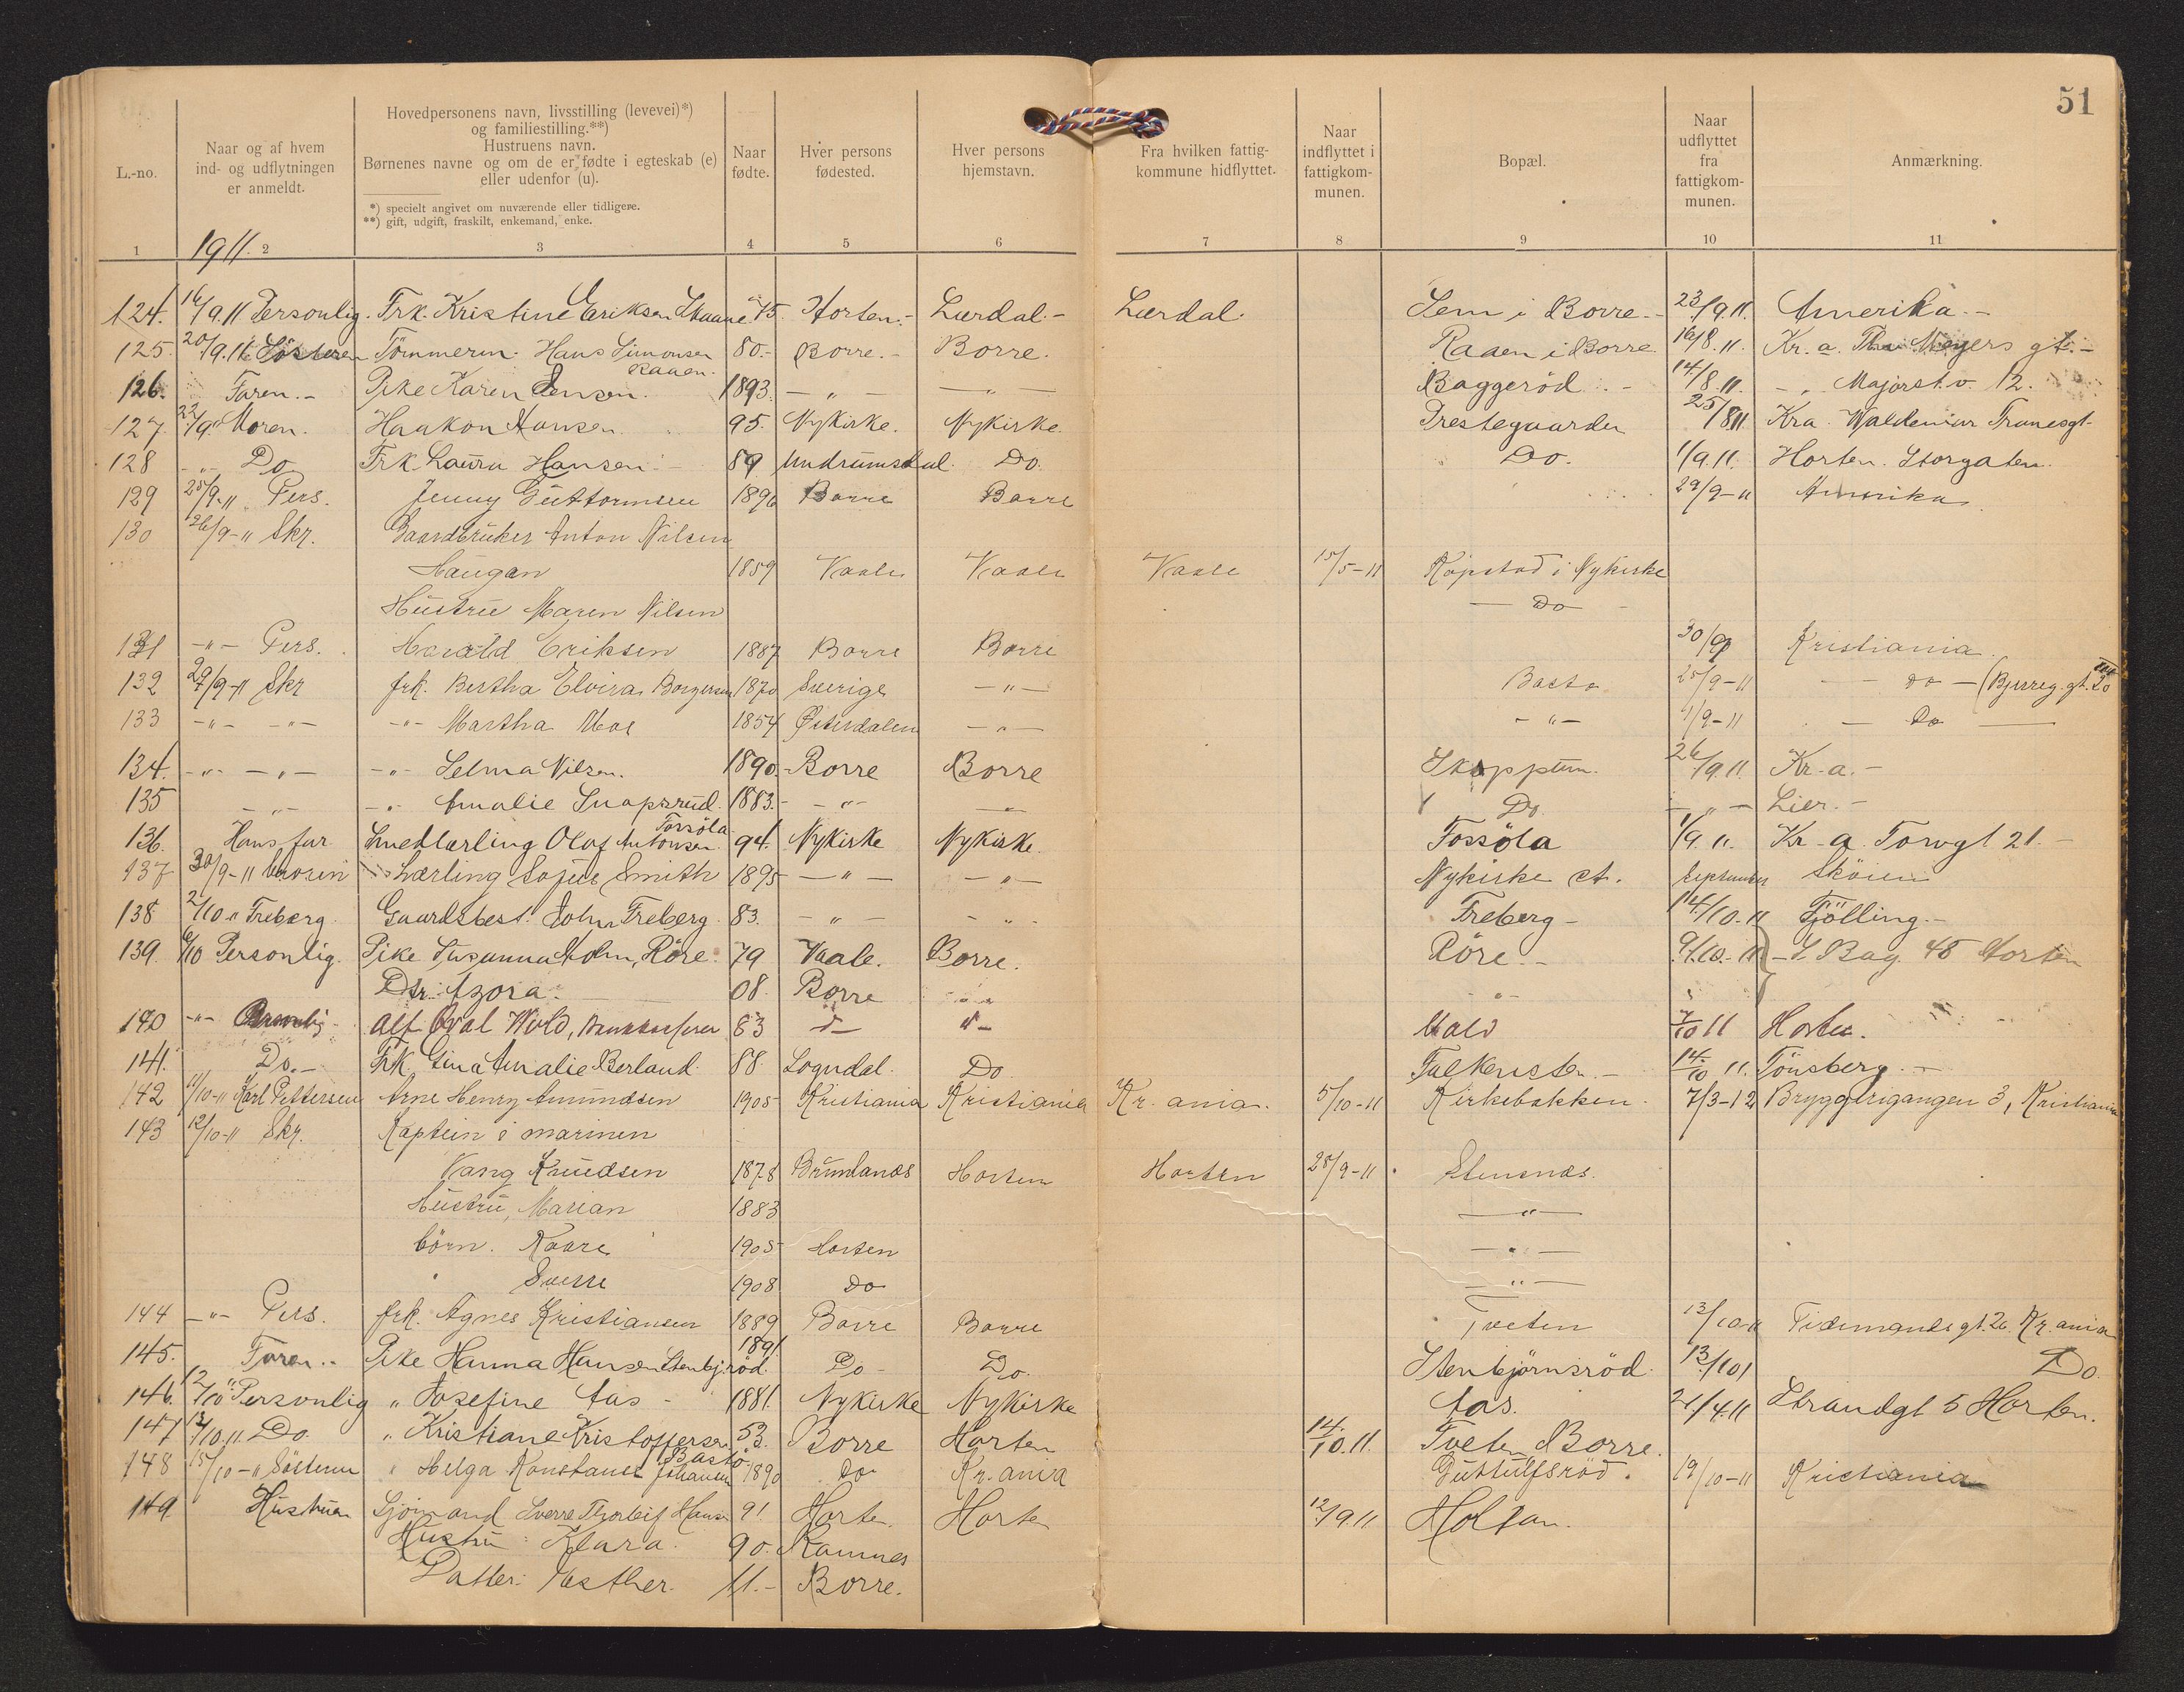 51
L.-no.
Naar og af hvem
ind- og udflytningen
er anmeldt.
Hovedpersonens navn, livsstilling (levevei)*)
og familiestilling.**)
Hustruens navn.
Børnenes navne og om de er fødte i egteskab (e)
eller udenfor (u).
*) specielt angivet om nuværende eller tidligere.
**) gift, udgift, fraskilt, enkemand, enke.
Naar
fødte.
Hver persons
fødested.
Hver persons
hjemstavn.
Fra hvilken fattig-
kommune hidflyttet.
Naar
indflyttet i
fattigkom-
munen.
Bopæl.
Naar
udflyttet
fra
fattigkom-
munen.
Anmærkning.
1 1911. 2 3 4 5 6 7 8 9 10 11
124. 16/9.11 Personlig. Frk. Kristine Eriksen 75. Horten.- Lærdal.- Lærdal. Sem i Borre.- 23/9.11. Amerika.-
125. 20/9.11. Søsteren Tømmerm. Hans Simonsen 80.- Borre.- Borre. Raaen i Borre 16/8.11. Kr.a. Meyers gt.-
Raaen.
126. Faren.- Pike Karen Jensen. 1893. - " - - " - Baggerød.- 14/8.11. - " Majorst.v. 12.
127. 22/9" Moren. Haakon Hansen. 95. Nykirke. Nykirke. Prestegaarden 25/8 11 Kra. Waldemar Tranesgt.
128 -"- Do Frk. Laura Hansen.- 89 Undrumsdal. Do. Do. 1/9.11. Horten. Storgaten.
129 25/9-11 Pers. Jenny Guttormsen 1896 Borre Borre 29/9-11 Amerika
130 26/9-11 Skr. Gaardbruker Anton Nilsen
Haugan 1859 Vaale Vaale Vaale 15/5-11 Kopstad i Nykirke
Hustru Maren Nilsen - Do -
131 -"- Pers. Harald Eriksen 1887 Borre Borre 30/9 Kristiania.
132 29/9-11 Skr frk. Bertha Elvira Borgersen 1870 Sverige -"- Basto 25/9-11 - Do - (Bjerreg. gt. 20
133 -"- -"- -"- Martha Moe 1854 Østerdalen -"- -"- 1/9-11 - Do -
134. -"- -"- -"- Selma Nilsen. 1890.- Borre Borre Skoppum. 26/9.11. Kr.a.-
135 -"- -"- Amalie Snapsrud. 1883.- -"- -"- Do. - " - Lier.-
136. Hans far Smedlærling Olaf Antonsen Fossøla. 94. Nykirke Nykirke. Fossøla 1/9.11. Kr.a. Torvgt 21.-
137 30/9-11 Lærling Sofus Smith 1895 -"- -"- Nykirke st. September Skøien
138 2/10 " Freberg Gaardsbest. John Freberg. 83. -"- -"- Freberg- 14/10.11 Tjølling.-
139. 6/10 Personlig. Pike Susanna Holm, Røre. 79 Vaale. Borre. Røre.- 9/10.-11 - 48 Horten
Dtr. Azora. 08. Borre -"-
140 -"- Personlig Alf Wold, 83 Wold 7/10 11 Horten.
141. Do.- Frk. Gina Amalie Berland. 88. Sogndal. Do Falkensten.- 14./10 11. Tønsberg.-
142 11/10-11 Karl Pettersen Arne Henry Amundsen 1905 Kristiania Kristiania Kr.ania. 5/10-11 Kirkebakken. 7/3-12 Bryggerigangen 3, Kristiania
143 12/10-11 Skr. Kaptein i marinen
Vang Knudsen 1878 Brunlanæs Horten Horten 28/9-11 Stensnæs.
Hustru, Marian 1883 -"-
børn. Kaare 1905 Horten -"-
" Sverre 1908 Do -"-
144 -"- Pers. frk. Agnes Kristiansen 1889 Borre Borre Tveten 13/10-11 Tidemandsgt. 26. Kr.ania
145. Faren.. Pike Hanna Hansen Stenbj.rød. 1891 Do- Do. Stenbjørnsrød. 13/10 Do.
146. 12/10" Personlig " Josefine Aas - 1881. Nykirke Nykirke Aas. 21/4.11 Strandgt 5 Horten.
147 13/10.11. Do. " Kristiane Kristoffersen 53. Borre Horten 14./10.11. Tveten, Borre.
148 15/10-11 Søsteren " Helga Konstanse Johansen Bastø 1890 Do Kr.ania Guttulfsrød. 19/10-11 Kristiania
149 Hustruen Sjømand Sverre Thorleif Hansen 91. Horten. Horten 12/9.11. Holtan.
Hustru: Klara. 90. Ramnes
Datter: Esther. 11.- Borre.